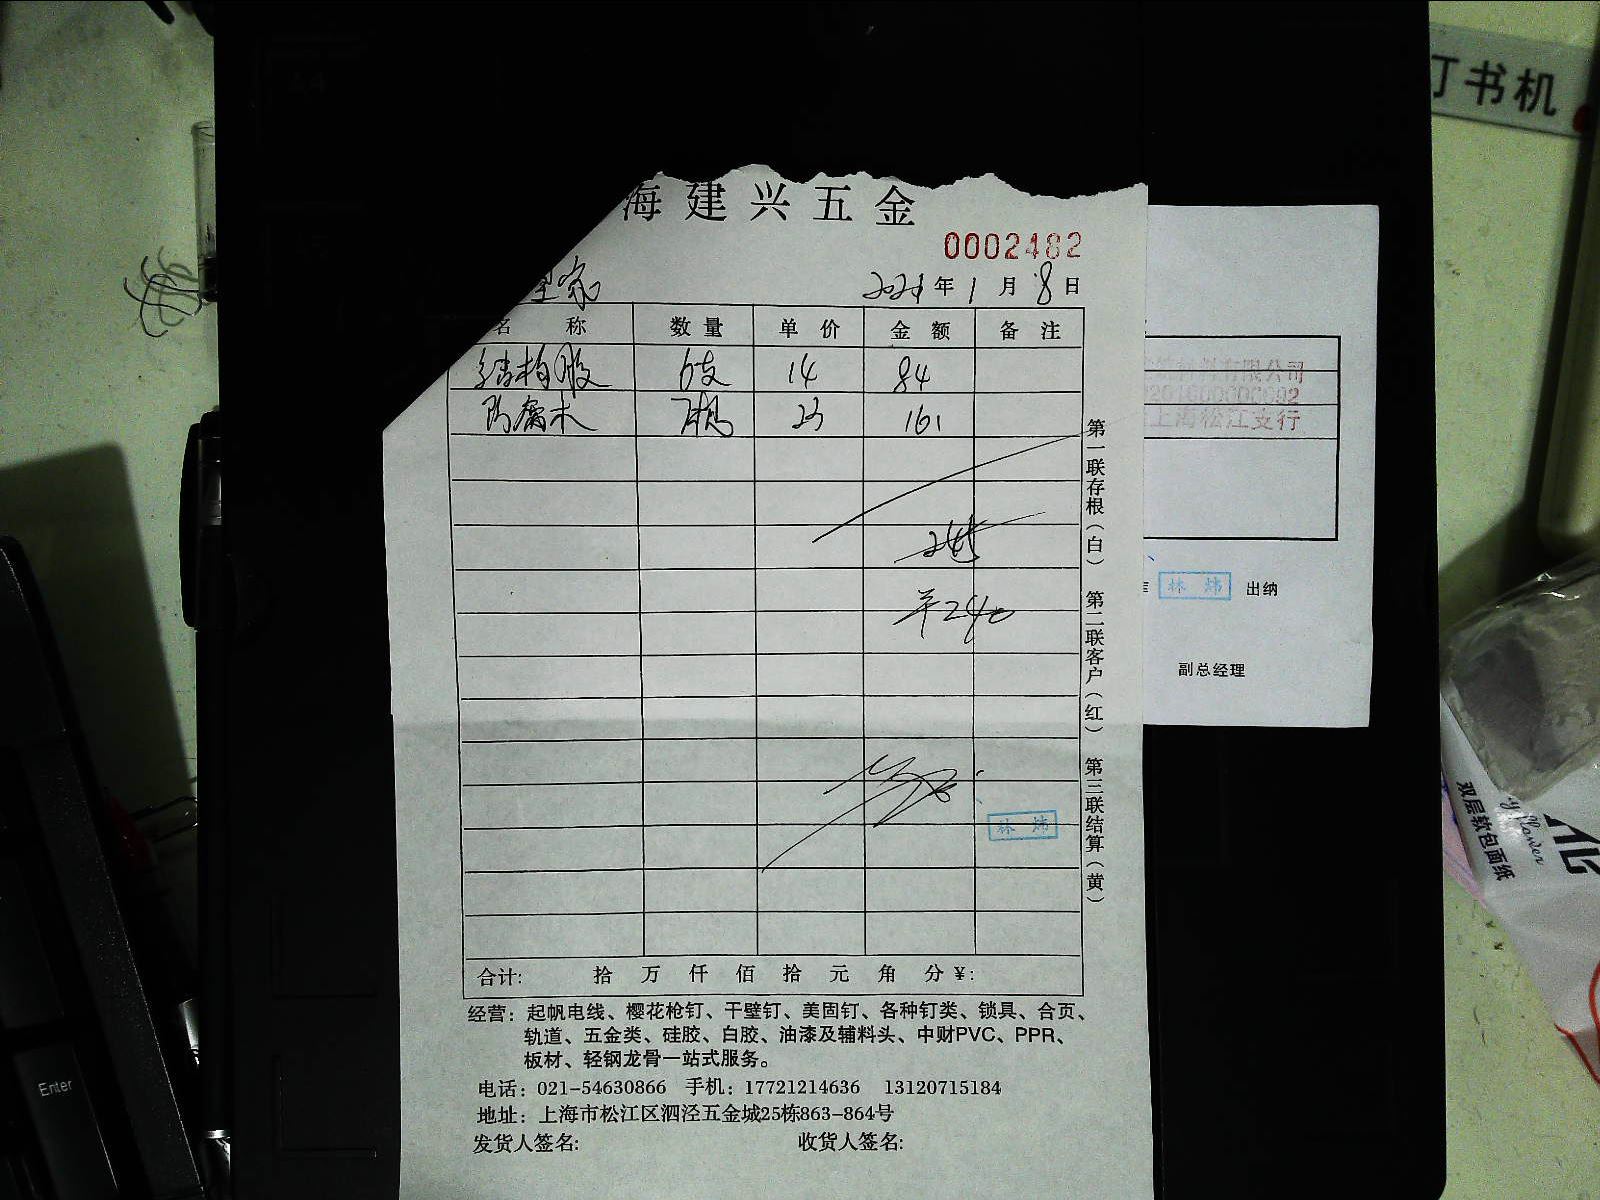 订书机
海建兴五金
0002482
2021年1月8日
名 称 数量 单价 金额 备注
结构胶 6支 14 84
防腐木 7根 23 161
245
平240
合计: 拾 万 仟 佰 拾 元 角 分¥:
第一联存根（白） 第二联客户（红） 第三联结算（黄）
林 炜
经营：起帆电线、樱花枪钉、干壁钉、美固钉、各种钉类、锁具、合页、
轨道、五金类、硅胶、白胶、油漆及辅料头、中财PVC、PPR、
板材、轻钢龙骨一站式服务。
电话：021-54630866 手机：17721214636 13120715184
地址：上海市松江区泗泾五金城25栋863-864号
发货人签名: 收货人签名:
材料有限公司
上海松江支行
林 炜 出纳
副总经理
Enter
双层软包面纸